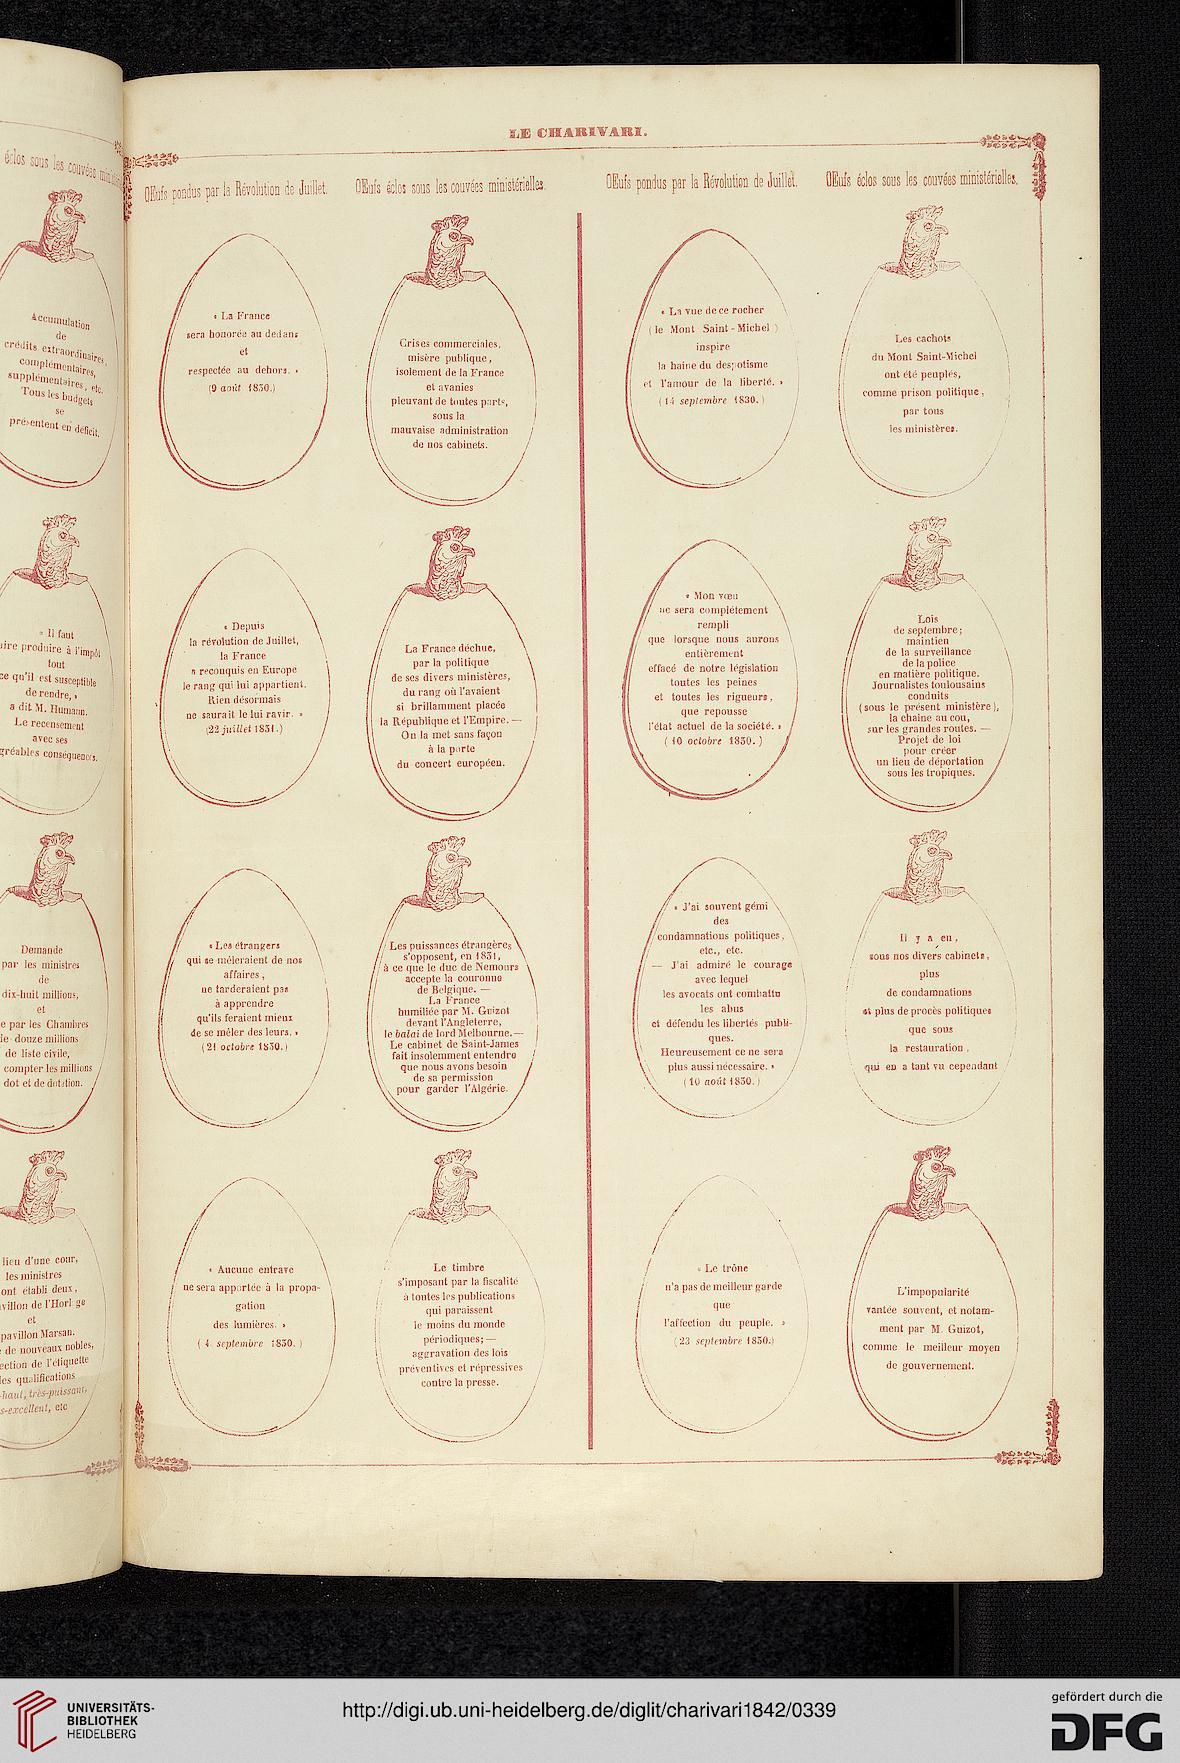 éclos sous les couvées
Accumulation
de
crédits extraordinaires,
complémentaires,
supplémentaires, etc.
Tous les budgets
se
présentent en déficit.
« Il faut
produire à l'impôt
tout
ce qu'il est susceptible
de rendre, »
a dit M. Humann.
Le recensement
avec ses
conséquences.
Demande
par les ministres
de
dix-huit millions,
et
par les Chambres
douze millions
de liste civile,
compter les millions
dot et de dotation.
lieu d'une cour,
les ministres
ont établi deux,
de l'Horloge
et
pavillon Marsan.
de nouveaux nobles,
de l'étiquette
qualifications
haut, très-puissant,
etc
LE CHARIVARI.
OEufs pondus par la Révolution de Juillet.
« La France
sera honorée au dedans
et
respectée au dehors. »
(9 août 1830.)
« Depuis
la révolution de Juillet,
la France
a reconquis en Europe
le rang qui lui appartient.
Rien désormais
ne saurait le lui ravir. »
(22 juillet 1831.)
« Les étrangers
qui se mêleraient de nos
affaires,
ne tarderaient pas
à apprendre
qu'ils feraient mieux
de se mêler des leurs. »
(21 octobre 1830.)
« Aucune entrave
ne sera apportée à la propa-
gation
des lumières. »
(4 septembre 1830.)
OEufs éclos sous les couvées ministérielles.
Crises commerciales,
misère publique,
isolement de la France
et avanies
pleuvant de toutes parts,
sous la
mauvaise administration
de nos cabinets.
La France déchue,
par la politique
de ses divers ministères,
du rang où l'avaient
si brillamment placée
la République et l'Empire. —
On la met sans façon
à la porte
du concert européen.
Les puissances étrangères
s'opposent, en 1831,
à ce que le duc de Nemours
accepte la couronne
de Belgique. —
La France
humiliée par M. Guizot
devant l'Angleterre,
le balai de lord Melbourne. —
Le cabinet de Saint-James
fait insolemment entendre
que nous avons besoin
de sa permission
pour garder l'Algérie.
Le timbre
s'imposant par la fiscalité
à toutes les publications
qui paraissent
le moins du monde
périodiques; —
aggravation des lois
préventives et répressives
contre la presse.
OEufs pondus par la Révolution de Juillet.
« La vue de ce rocher
(le Mont Saint-Michel)
inspire
la haine du despotisme
et l'amour de la liberté. »
(14 septembre 1830.)
« Mon vœu
ne sera complétement
rempli
que lorsque nous aurons
entièrement
effacé de notre législation
toutes les peines
et toutes les rigueurs,
que repousse
l'état actuel de la société. »
(10 octobre 1830.)
« J'ai souvent gémi
des
condamnations politiques,
etc., etc.
— J'ai admiré le courage
avec lequel
les avocats ont combattu
les abus
et défendu les libertés publi-
ques.
Heureusement ce ne sera
plus aussi nécessaire. »
(10 août 1830.)
« Le trône
n'a pas de meilleur garde
que
l'affection du peuple. »
(23 septembre 1830.)
OEufs éclos sous les couvées ministérielles.
Les cachots
du Mont Saint-Michel
ont été peuplés,
comme prison politique,
par tous
les ministères.
Lois
de septembre;
maintien
de la surveillance
de la police
en matière politique.
Journalistes toulousains
conduits
(sous le présent ministère),
la chaîne au cou,
sur les grandes routes. —
Projet de loi
pour créer
un lieu de déportation
sous les tropiques.
Il y a eu,
sous nos divers cabinets,
plus
de condamnations
et plus de procès politiques
que sous
la restauration,
qui en a tant vu cependant
L'impopularité
vantée souvent, et notam-
ment par M. Guizot,
comme le meilleur moyen
de gouvernement.
UNIVERSITÄTS-
BIBLIOTHEK
HEIDELBERG
http://digi.ub.uni-heidelberg.de/diglit/charivari1842/0339
gefördert durch die
DFG